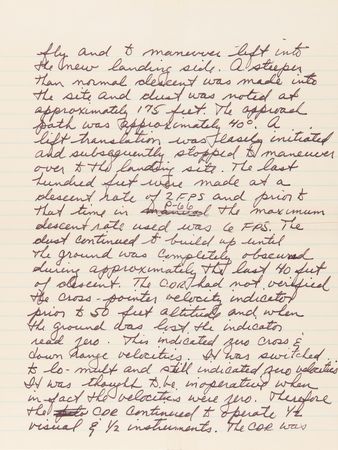 fly and to maneuver left into
the new landing site. A steeper
than normal descent was made into
the site and dust was noted at
approximately 175 feet. The approach
path was approximately 40°. A
left translation was easily initiated
and subsequently stopped to maneuver
over to the landing site. The last
hundred feet were made at a
descent rate of 2 FPS and prior to
that time in P-66 the maximum
descent rate used was 6 FPS. The
dust continued to build up until
the ground was completely obscured
during approximately the last 40 feet
of descent. The CDR had not verified
the cross-pointer velocity indicator
prior to 50 feet altitude and when
the ground was lost the indicator
read zero. This indicated zero cross &
down range velocities. It was switched
to lo-mult and still indicated zero velocities
It was thought to be inoperative when
in-fact the velocities were zero. Therefore
the CDR continued to operate 1/2
visual & 1/2 instruments. The CDR was